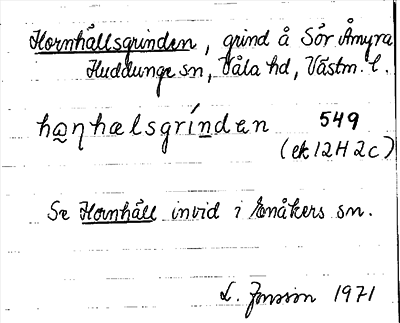 Hornhällsgrinden, grind å Sör Åmyra
Huddunge sn, Våla hd, Västm. l.
ha̱ṉhælsgríṉden 549
(ek 12H 2c)
Se Hornhäll invid i Enåkers sn.
L. Jonsson 1971